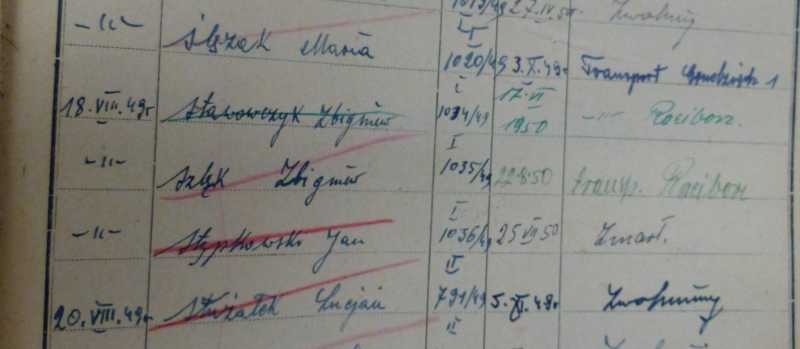 1013/49 27.IV.50 Zwolniony
—"— Ślęzak Maria
I
1020/49 3.X.49r Transport Grudziądz 1
I 17.VI
18.VIII.49r Stawowczyk Zbigniew 1034/49 1950 —"— Racibórz.
I
—"— Szłęk Zbigniew 1035/49 22.8.50 transp. Racibórz
I
—"— Stypkowski Jan 1036/49 25 VII 50 Zmarł.
II
20.VIII.49r Stużałek Lucjan 791/49 5.XI.49r Zwolniony
II